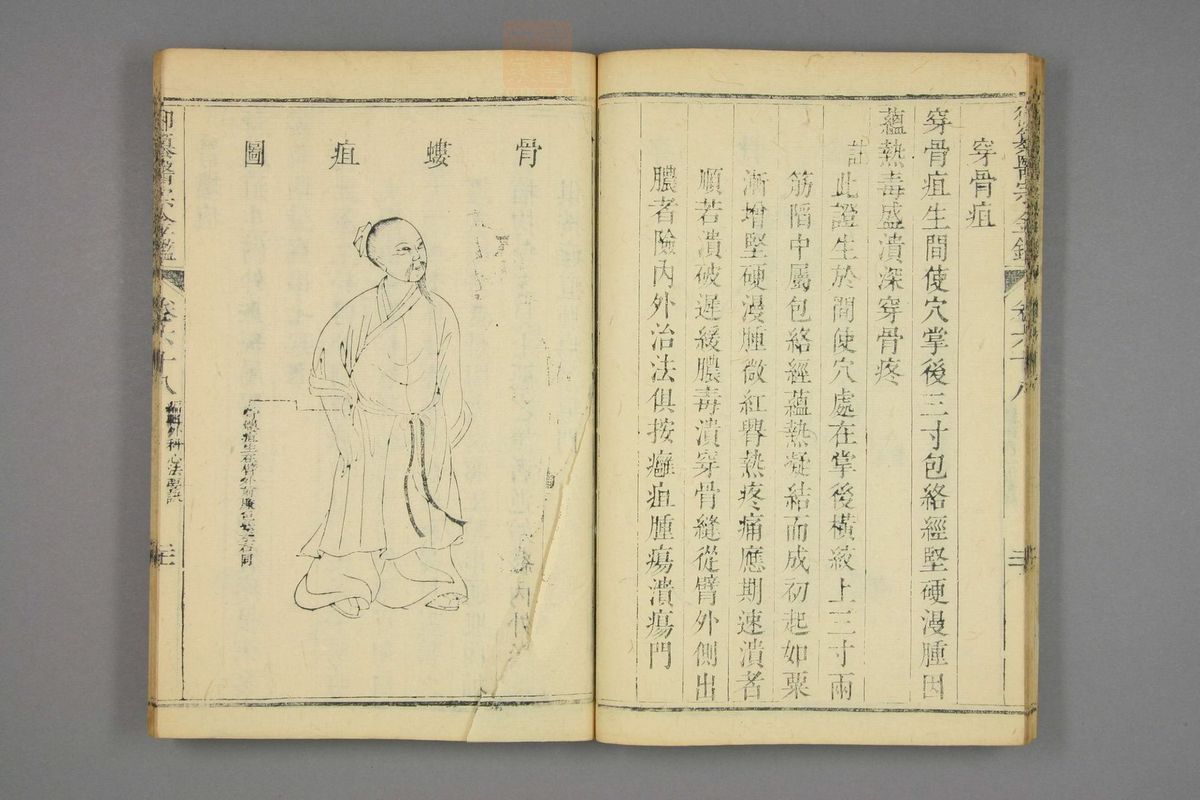 穿骨疽
穿骨疽生間使穴掌後三寸包絡經堅硬漫腫因
蘊熱毒盛潰深穿骨疼
註此證生於間使穴處在掌後橫紋上三寸兩
筋陷中屬包絡經蘊熱凝結而成初起如粟
漸增堅硬漫腫微紅㽲熱疼痛應期速潰者
順若潰破遲緩膿毒潰穿骨縫從臂外側出
膿者險內外治法俱按癰疽腫瘍潰瘍門
骨螻疽圖
御纂醫宗金鑑
卷六十八
編輯外科心法要訣